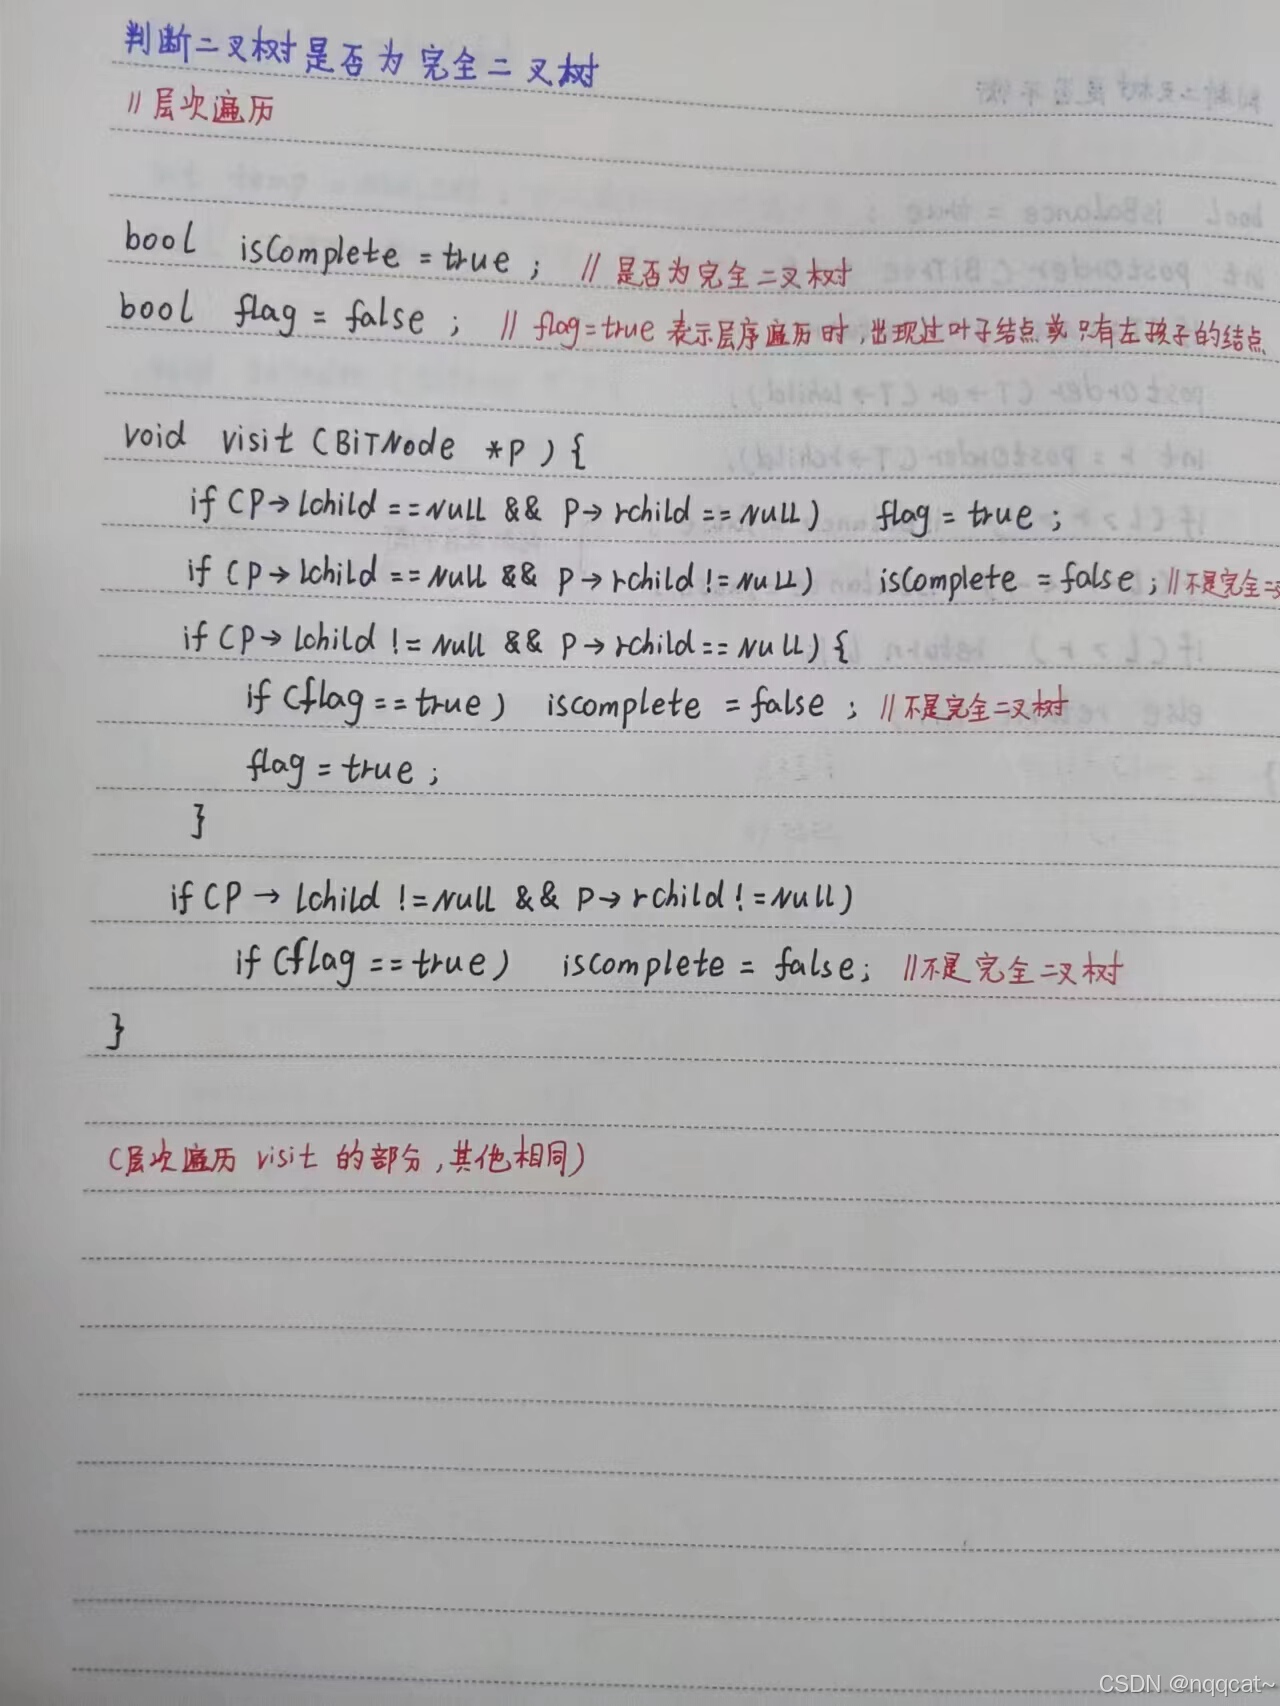 判断二叉树是否为完全二叉树
//层次遍历
bool isComplete = true ; // 是否为完全二叉树
bool flag = false ; // flag=true 表示层序遍历时,出现过叶子结点或只有左孩子的结点
void visit (BiTNode *P ) {
if (P→lchild ==NULL && P→rchild ==NULL) flag = true ;
if (P→lchild ==NULL && P→rchild !=NULL) isComplete = false ; //不是完全二
if (P→lchild !=NULL && P→rchild==NULL) {
if (flag==true) iscomplete = false ; //不是完全二叉树
flag = true ;
}
if (P→lchild !=NULL && P→rchild !=NULL)
if (flag ==true) iscomplete = false; //不是完全二叉树
}
(层次遍历 visit 的部分,其他相同)
CSDN @nqqcat~